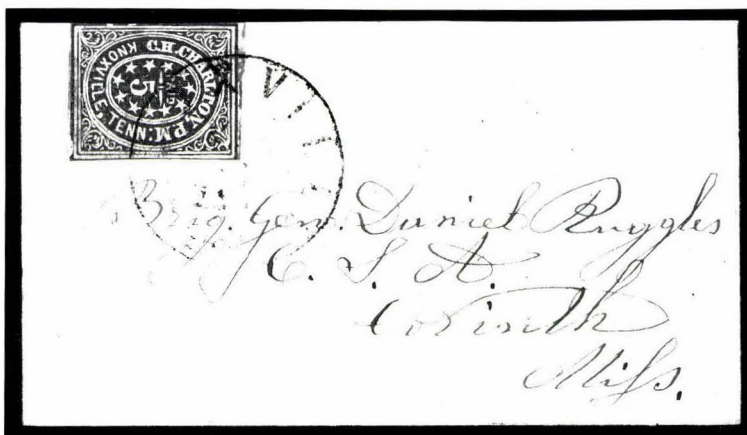 C.H. CHARLTON, P.M.
KNOXVILLE TENN:
5
Brig. Gen. Daniel Ruggles
C. S. A.
Corinth
Miss.